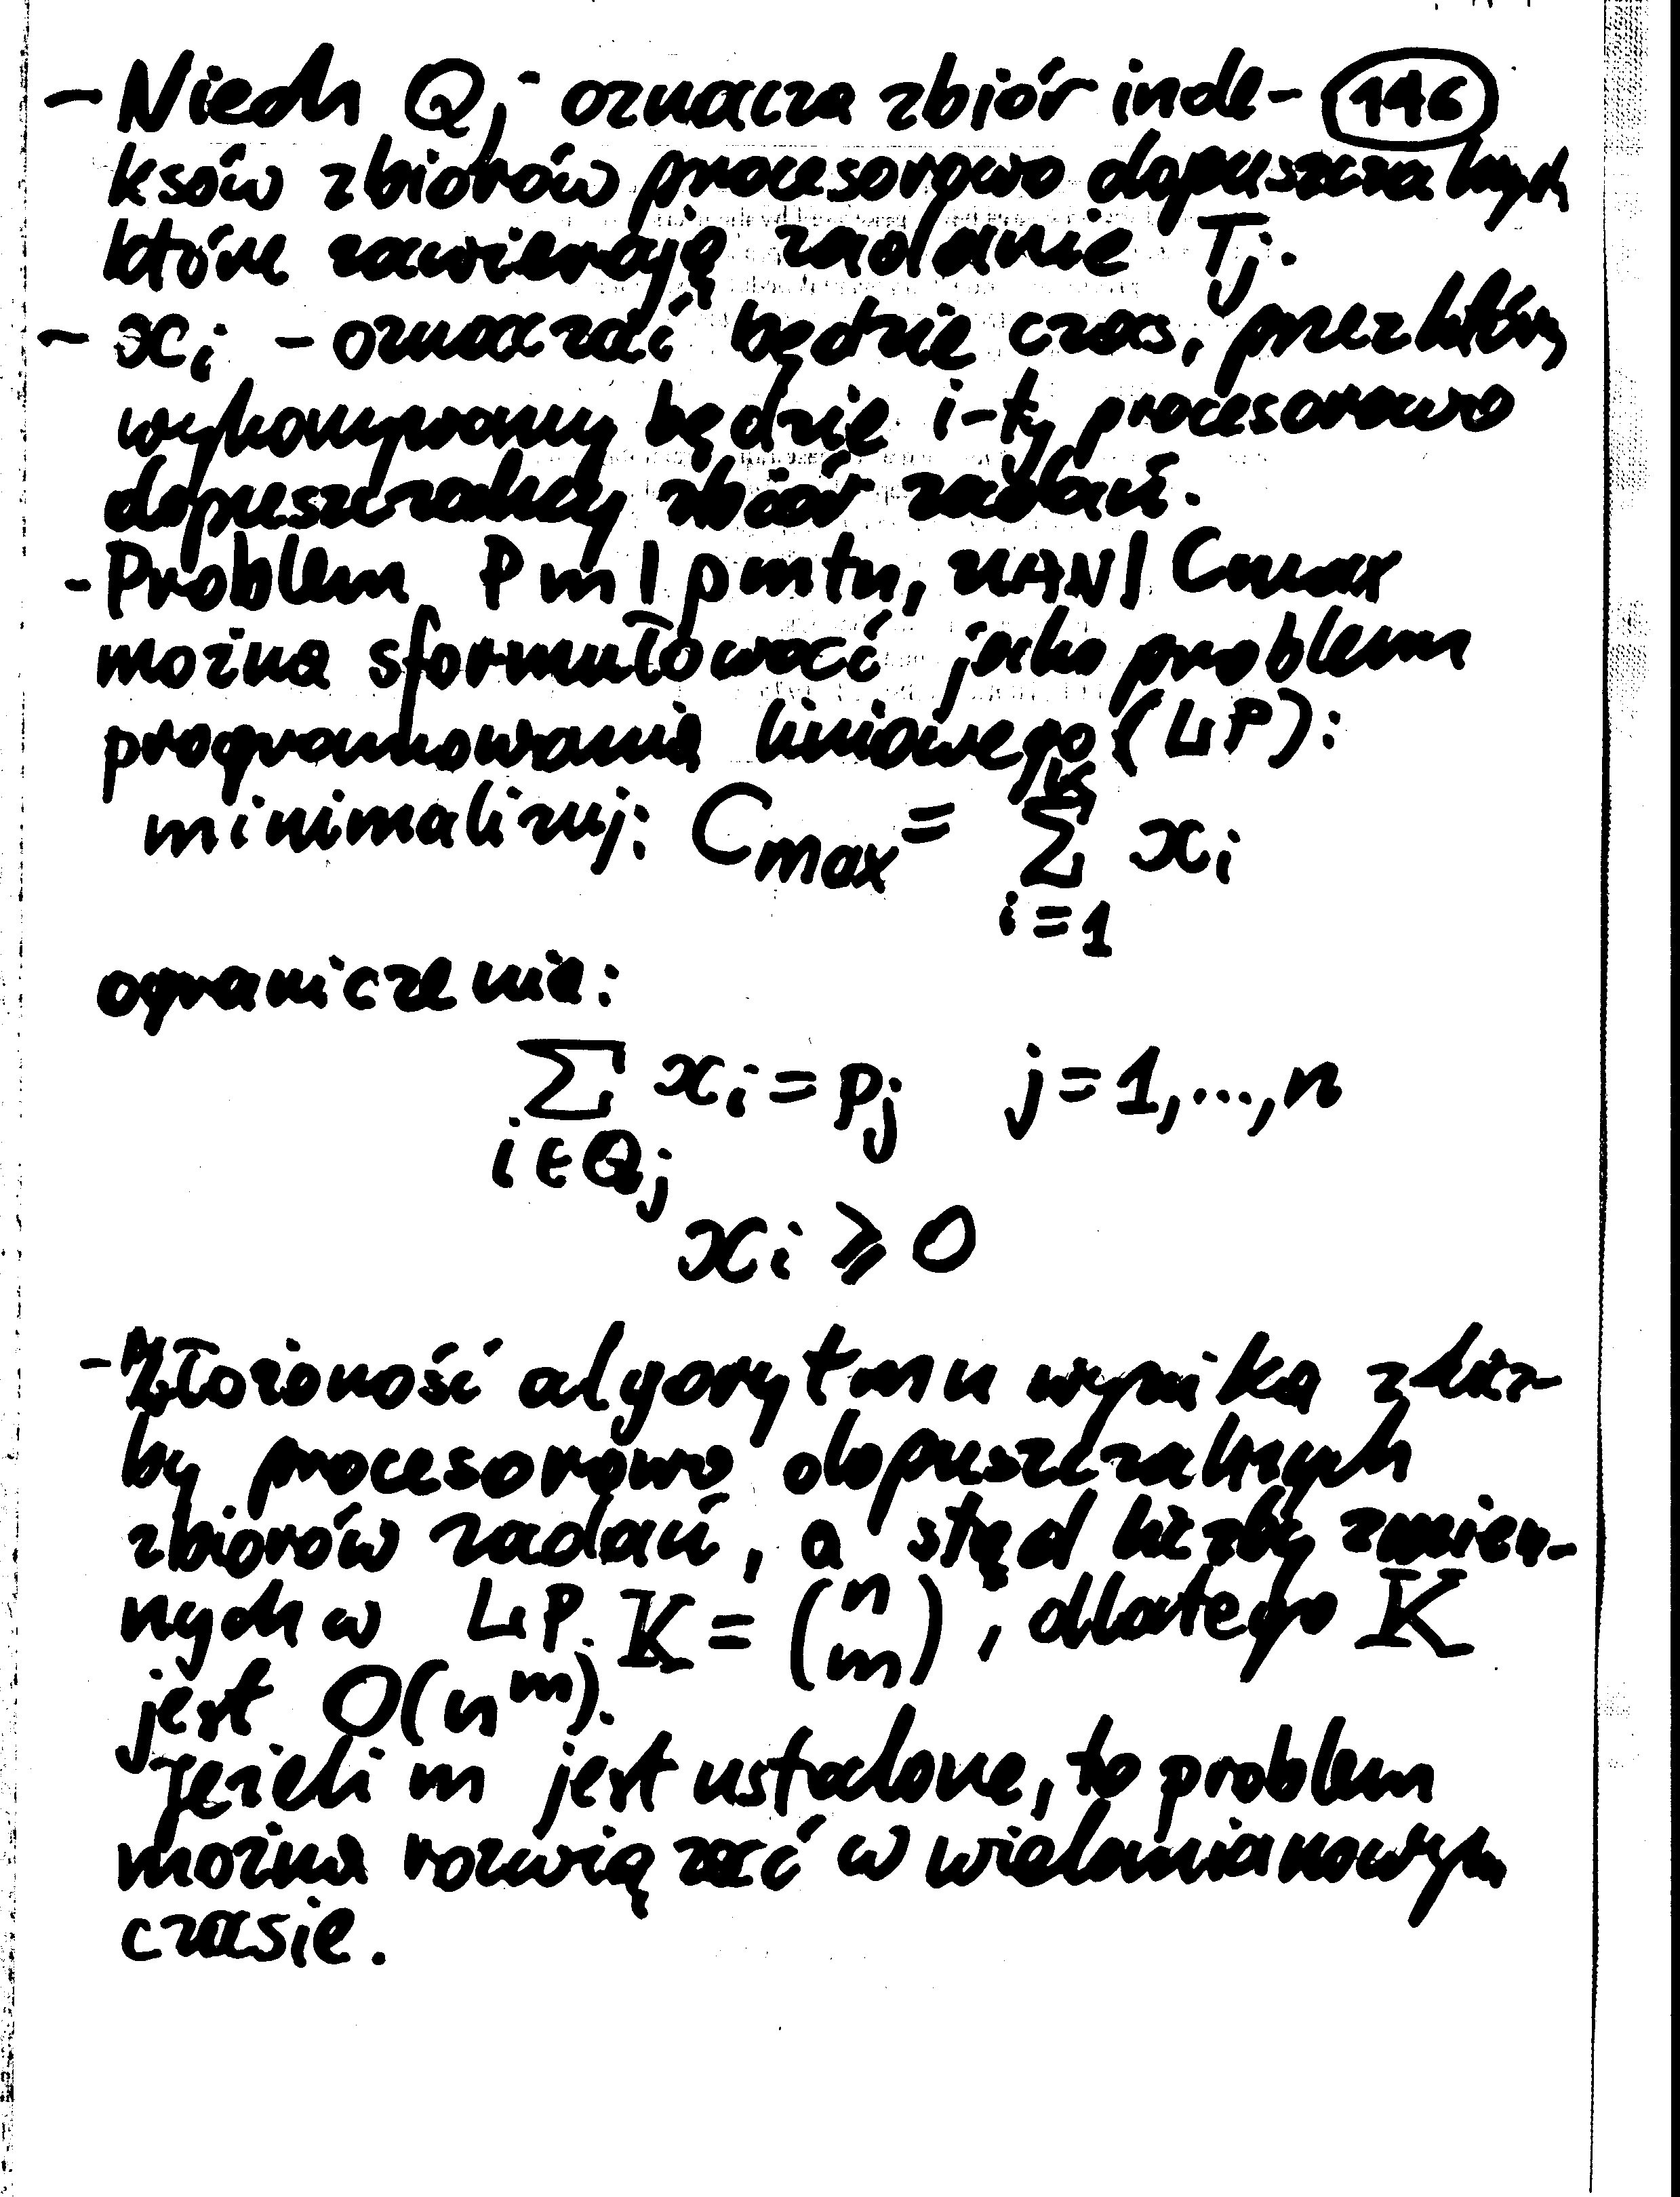 - Niech Qj oznacza zbiór inde- 146
ksów zbiorów procesorowo dopuszczalnych
które zawierają zadanie Tj.
- xi - oznaczać będzie czas, przez który
wykonywany będzie i-ty procesorowo
dopuszczalny zbiór zadań.
- Problem Pm | pmtn, UAN | Cmax
można sformułować jako problem
programowania liniowego (LP):
minimalizuj: Cmax = K∑i=1 xi
ograniczenia:
∑i∈Qj xi = pj j=1,...,n
xi ≥ 0
- Złożoność algorytmu wynika z licz-
by procesorowo dopuszczalnych
zbiorów zadań, a stąd liczby zmien-
nych w LP. K = (n m), dlatego K
jest O(n^m).
Jeżeli m jest ustalone, to problem
można rozwiązać w wielomianowym
czasie.